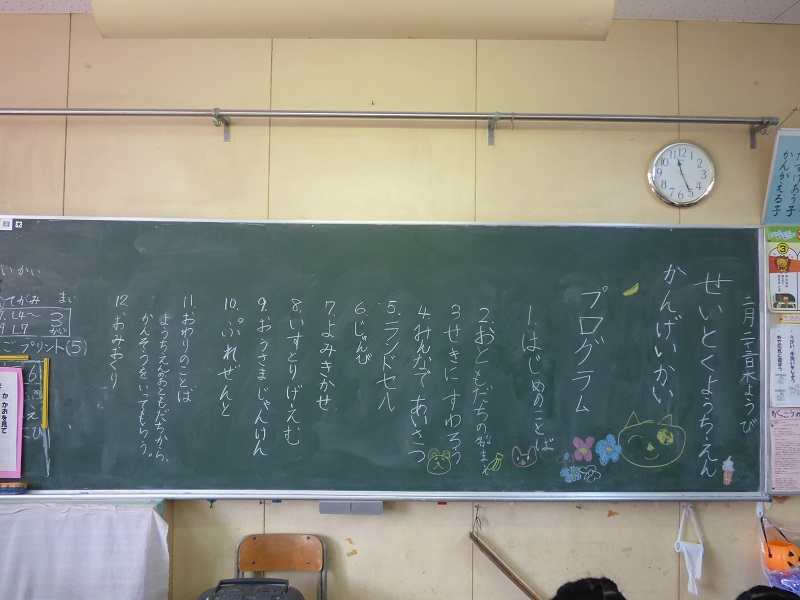 二月二十三日木ようび
せいとくようちえん
かんげいかい
プログラム
1.はじめのことば
2.おともだちの
3.せきにすわろう
4.みんなであいさつ
5.ランドセル
6.じゅんび
7.よみきかせ
8.いすとりげえむ
9.おうさまじゃんけん
10.ぷれぜんと
11.おわりのことば
ようちえんのおともだちから、
かんそうをいってもらう。
12.おみおくり
プリント(5)
かんがえる子
か かおを見て